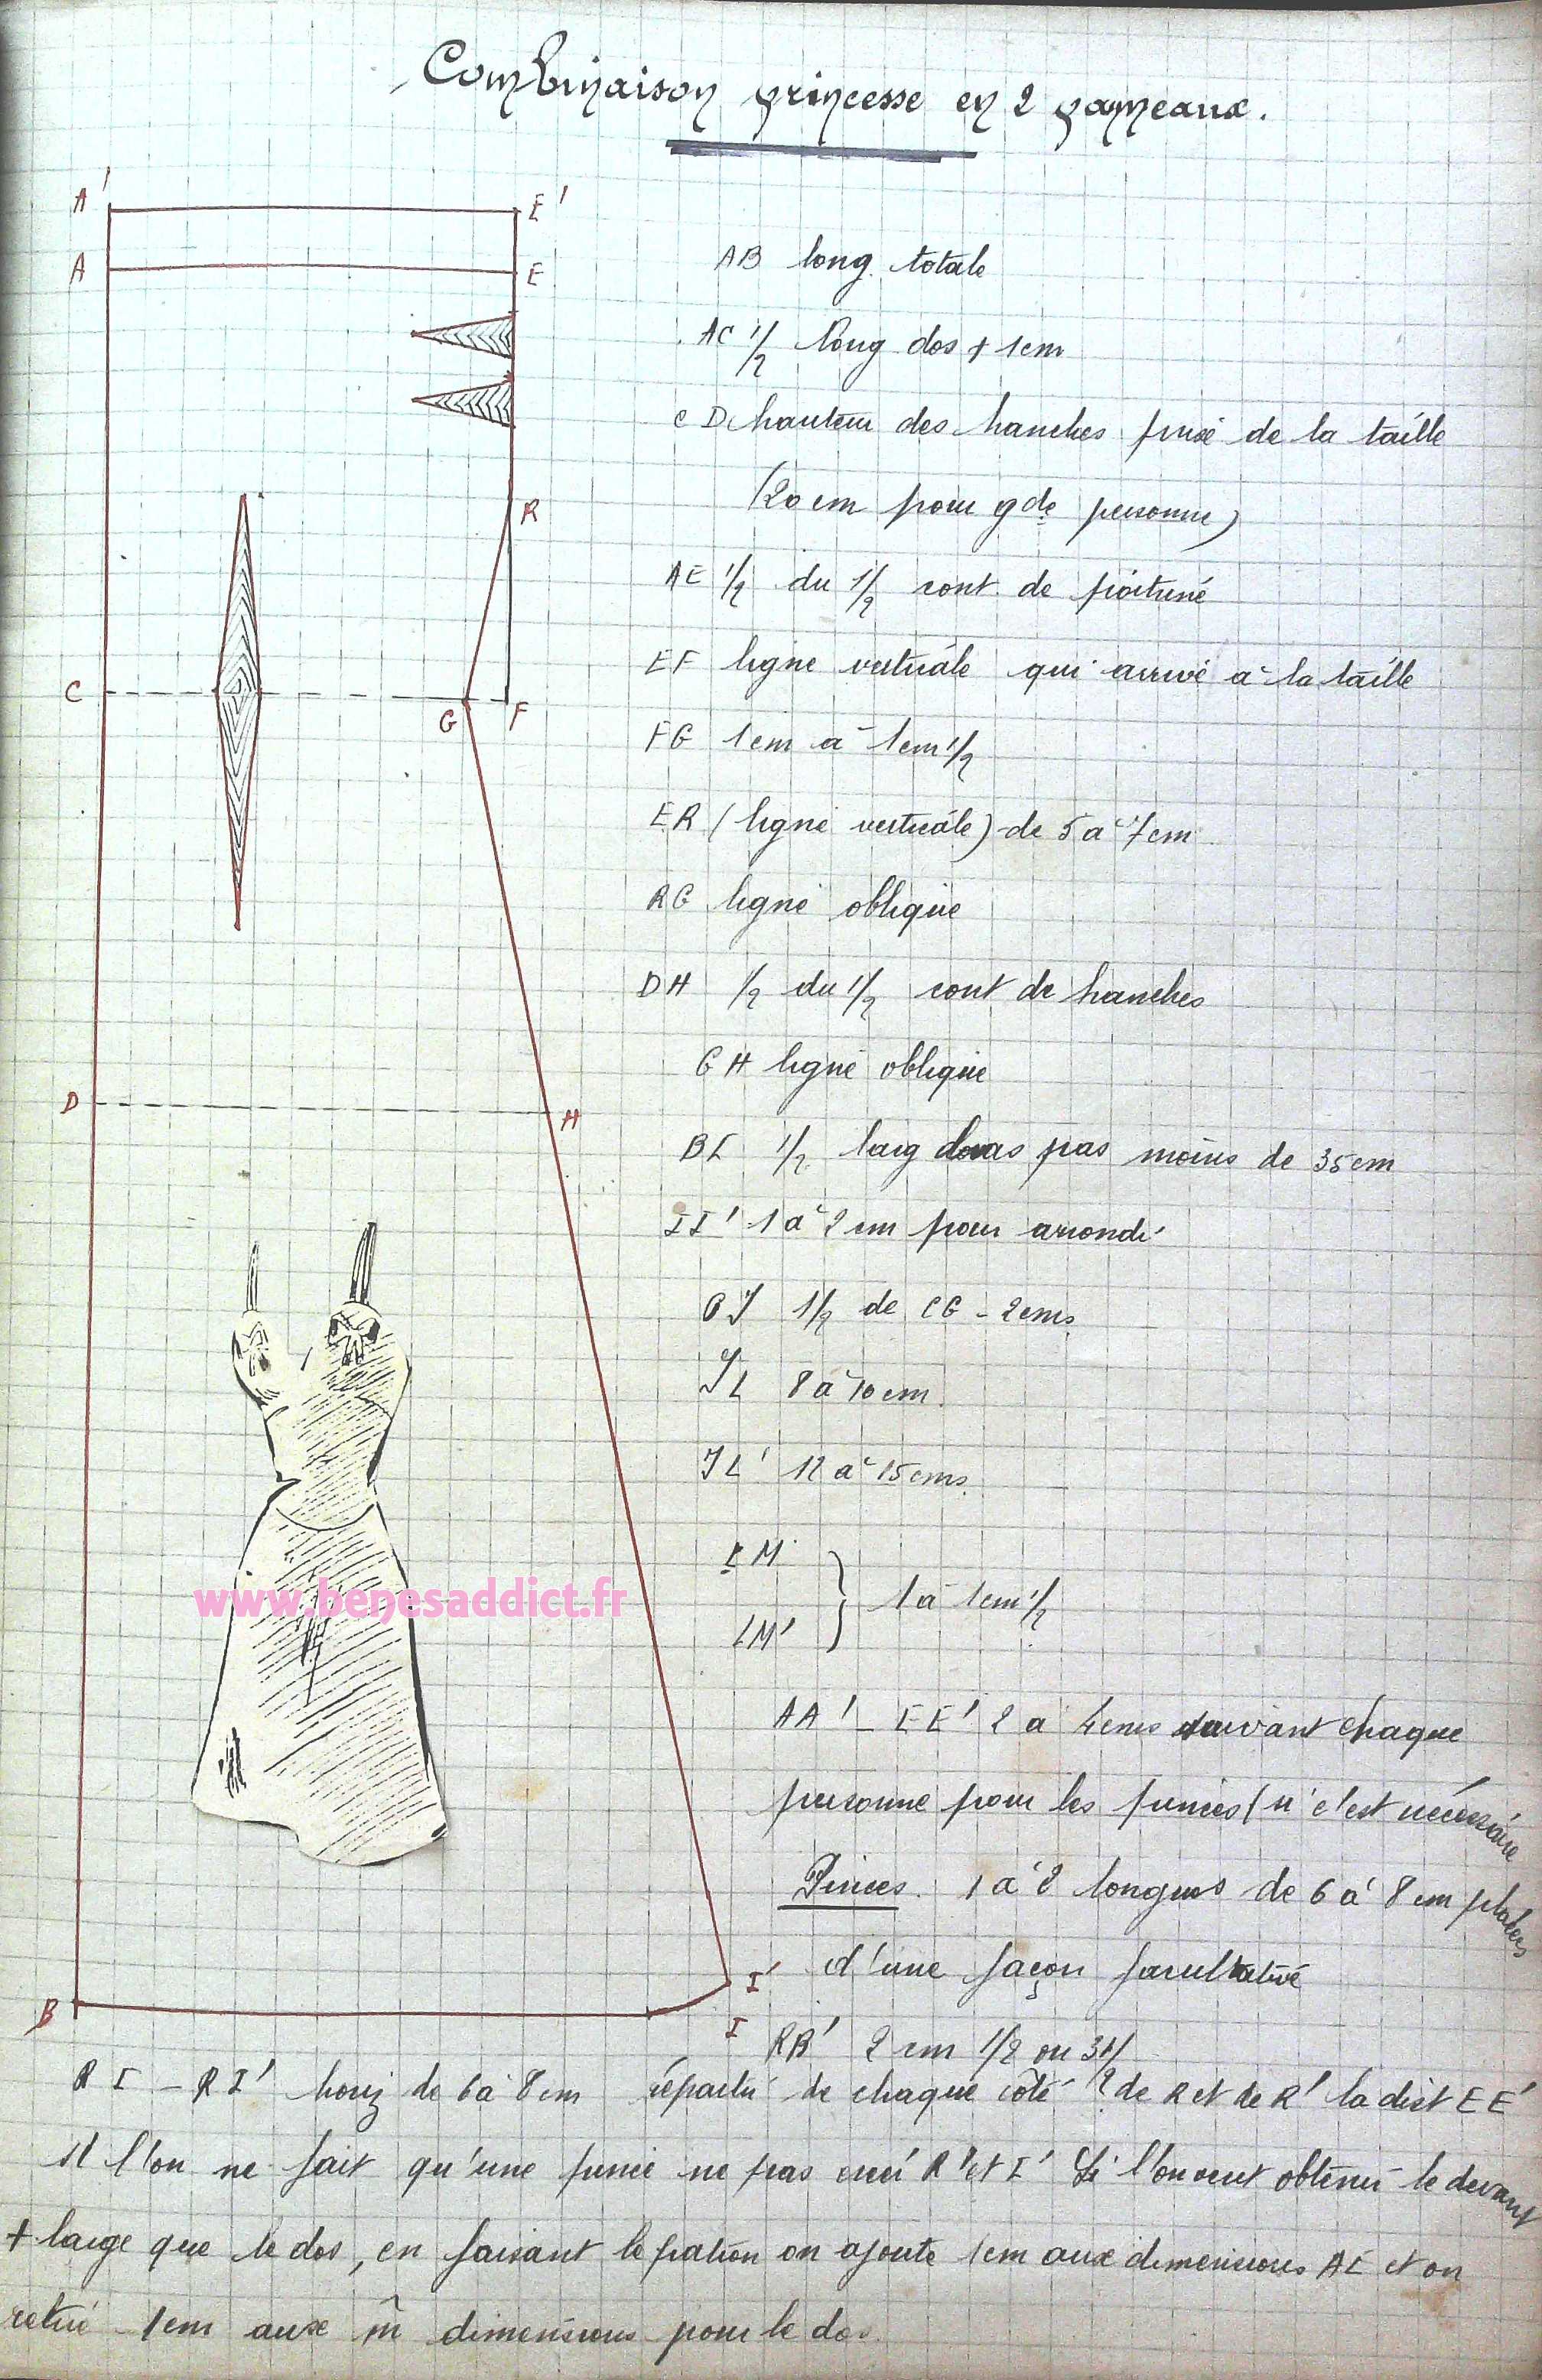 Combinaison princesse en 2 panneaux.
A'
E'
A
E
R
C
G
F
D
H
B
I'
I
AB long. totale
AC 1/2 long dos + 1cm
CD hauteur des hanches prise de la taille
(20 cm pour gde personne)
AE 1/2 du 1/2 cont. de poitrine
EF ligne verticale qui arrive à la taille
FG 1cm à 1cm 1/2
ER (ligne verticale) de 5 à 7cm
RG ligne oblique
DH 1/2 du 1/2 cont de hanches
GH ligne oblique
BI 1/2 larg du bas pas moins de 35cm
II' 1 à 2 cm pour arrondi
CJ 1/2 de CG - 2cms
JL 8 à 10 cm.
JL' 12 à 15cms.
LM
LM'
} 1 à 1cm 1/2
AA' - EE' 2 à 4cms suivant chaque
personne pour les pinces (si c'est nécessaire
Pinces. 1 à 2 longues de 6 à 8 cm placées
d'une façon facultative
RR' 2 cm 1/2 ou 3 1/2
RI - RI' horiz de 6 à 8cm répartir de chaque côté de R et de R' la dist EE'
si l'on ne fait qu'une pince ne pas R' et I' Si l'on veut obtenir le devant
+ large que le dos, en faisant le patron on ajoute 1cm aux dimensions AE et on
retire 1cm aux m̂ dimensions pour le dos.
www.benesaddict.fr